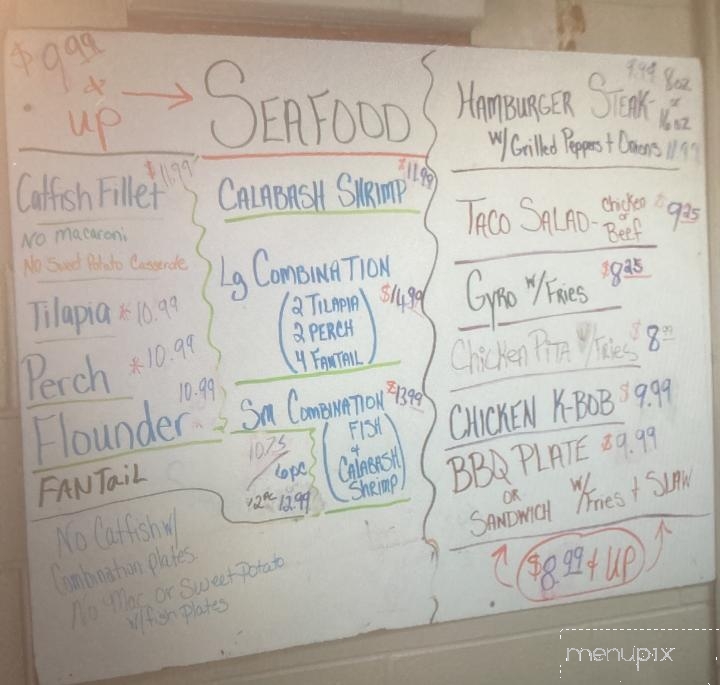 $9.99
&
up → SEAFOOD
Catfish Fillet $11.99
No Macaroni
No Sweet Potato Casserole
Tilapia * 10.99
Perch * 10.99
Flounder 10.99
FANTAIL
10.75
6pc
12pc 12.99
No Catfish w/
Combination plates.
No Mac or Sweet Potato
w/fish plates
CALABASH SHRIMP $11.99
Lg COMBINATION
$14.99
(2 TILAPIA
2 PERCH
4 FANTAIL)
Sm COMBINATION $13.99
(FISH
+
CALABASH
SHRIMP)
9.99 8oz
HAMBURGER STEAK- or
16oz
w/Grilled Peppers + Onions 11.99
TACO SALAD- chicken or Beef $9.25
GYRO w/FRIES $8.25
Chicken Pita w/Fries $8.99
CHICKEN K-BOB $9.99
BBQ PLATE $9.99
OR
SANDWICH w/Fries + SLAW
$8.99 + UP
menupix